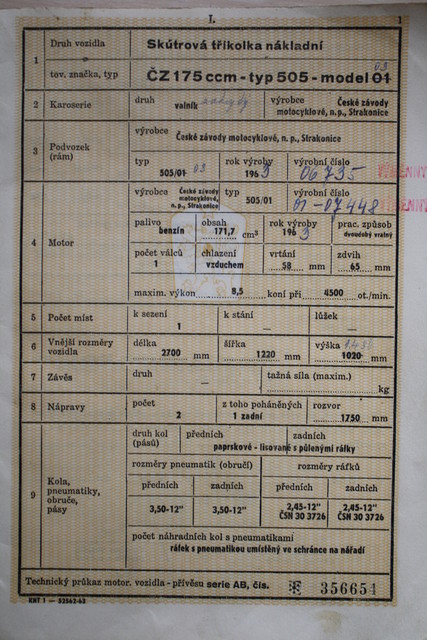 I.
1
1 Druh vozidla Skútrová tříkolka nákladní
tov. značka, typ ČZ 175 ccm - typ 505 - model 01 03
2 Karoserie druh valník výrobce České závody motocyklové, n. p., Strakonice
3 Podvozek (rám) výrobce České závody motocyklové, n. p., Strakonice
typ 505/01 03 rok výroby 1963 výrobní číslo 06735
4 Motor výrobce České závody motocyklové, n. p., Strakonice typ 505/01 výrobní číslo 01-07448
palivo benzin obsah 171,7 cm³ rok výroby 1963 prac. způsob dvoudobý vratný
počet válců 1 chlazení vzduchem vrtání 58 mm zdvih 65 mm
maxim. výkon 8,5 koní při 4500 ot./min.
5 Počet míst k sezení 1 k stání — lůžek —
6 Vnější rozměry vozidla délka 2700 mm šířka 1220 mm výška 1020 mm
7 Závěs druh — tažná síla (maxim.) kg
8 Nápravy počet 2 z toho poháněných 1 zadní rozvor 1750 mm
9 Kola, pneumatiky, obruče, pásy
druh kol (pásů) předních zadních
paprskové - lisované s půlenými ráfky
rozměry pneumatik (obručí) rozměry ráfků
předních zadních předních zadních
3,50-12" 3,50-12" 2,45-12" ČSN 30 3726 2,45-12" ČSN 30 3726
počet náhradních kol s pneumatikami
ráfek s pneumatikou umístěný ve schránce na nářadí
Technický průkaz motor. vozidla - přívěsu serie AB, čís. 356654
KNT 1 — 32562-62